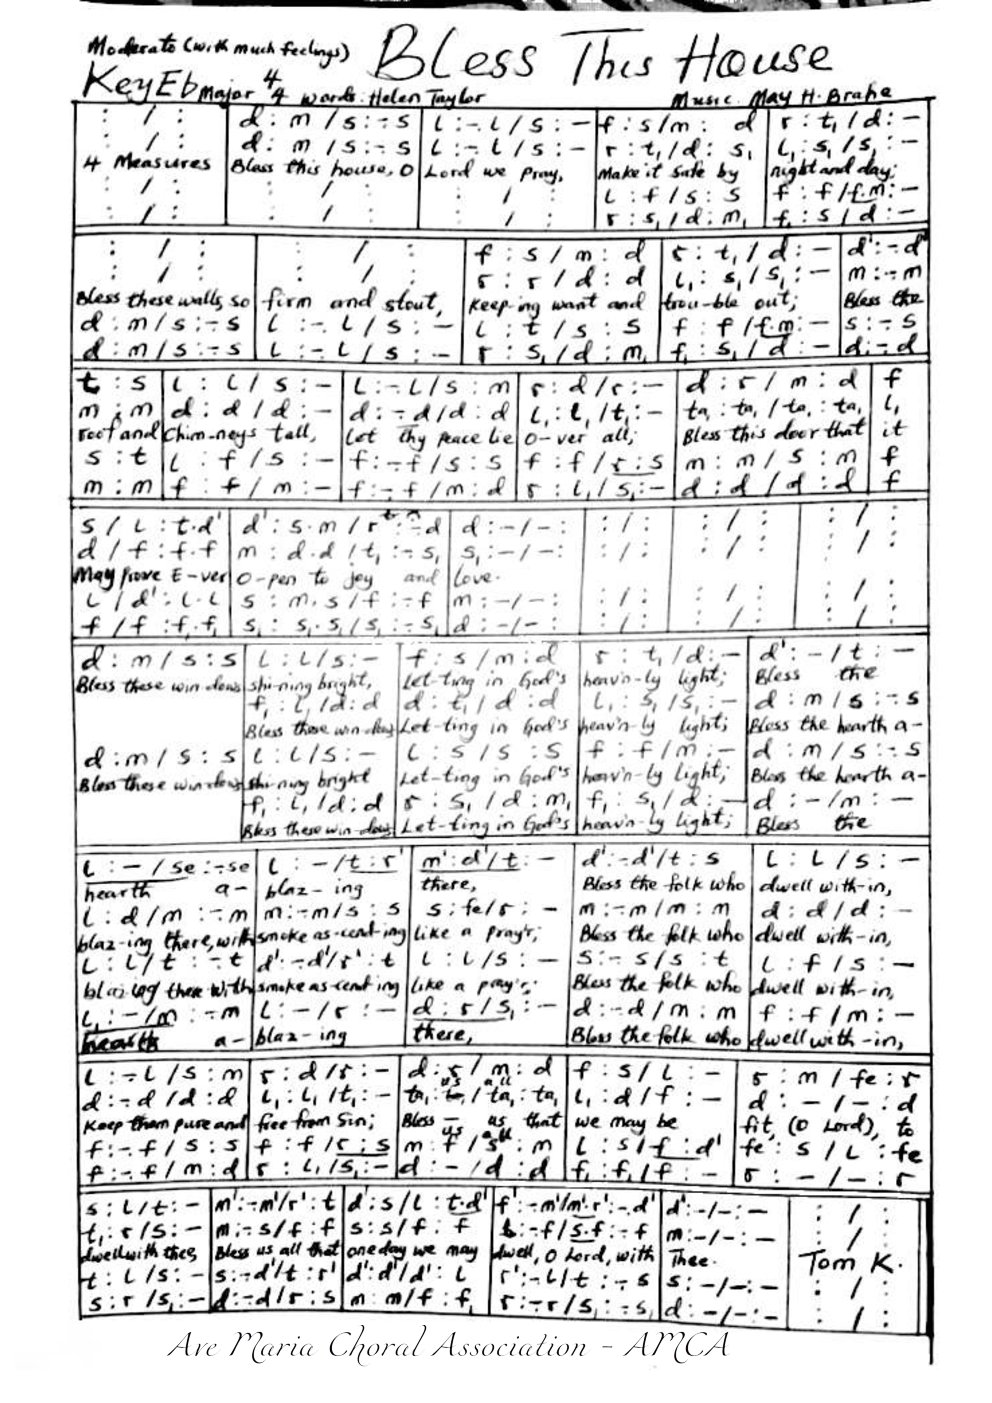 Moderato (with much feelings) BLess This House
Key Eb Major 4/4 words: Helen Taylor Music: May H. Brahe
: / : | d : m / s : - s | l : -. l / s : - | f : s / m : d | r : t, / d : -
: / : | d : m / s : - s | l : -. l / s : - | r : t, / d : s, | l, : s, / s, : -
4 Measures | Bless this house, O | Lord we pray, | Make it safe by | night and day;
: / : | : / : | : / : | l : f / s : s | f : f / f.m : -
: / : | : / : | : / : | r : s, / d : m, | f, : s, / d : -
: / : | : / : | f : s / m : d | r : t, / d : - | d' : - d'
: / : | : / : | r : r / d : d | l, : s, / s, : - | m : - m
Bless these walls, so | firm and stout, | Keep-ing want and | trou-ble out; | Bless the
d : m / s : - s | l : -. l / s : - | l : t / s : s | f : f / f.m : - | s : - s
d : m / s : - s | l : -. l / s : - | r : s, / d : m, | f, : s, / d : - | d : - d
t : s | l : l / s : - | l : -. l / s : m | r : d / r : - | d : r / m : d | f
m : m | d : d / d : - | d : - d / d : d | l, : l, / t, : - | ta, : ta, / ta, : ta, | l,
roof and | Chim-neys tall, | Let Thy peace lie | O-ver all; | Bless this door that | it
s : t | l : f / s : - | f : - f / s : s | f : f / r : s | m : m / s : m | f
m : m | f : f / m : - | f : - f / m : d | r : l, / s, : - | d : d / d : d | f
s / l : t.d' | d' : s.m / r : - d | d : - / - : | : / : | : / : | : / :
d / f : f.f | m : d.d / t, : - s, | s, : - / - : | : / : | : / : | : / :
May prove E-ver | O-pen to joy and | love.
l / d' : l.l | s : m.s / f : - f | m : - / - : | : / : | : / : | : / :
f / f : f.f, | s, : s,.s, / s, : - s, | d : - / - : | : / : | : / : | : / :
d : m / s : s | l : l / s : - | f : s / m : d | r : t, / d : - | d' : - / t : -
Bless these win-dows | shi-ning bright, | Let-ting in God's | heav'n-ly light; | Bless the
f, : l, / d : d | d : t, / d : d | l, : s, / s, : - | d : m / s : - s
Bless these win-dows | Let-ting in God's | heav'n-ly light; | Bless the hearth a-
d : m / s : s | l : l / s : - | l : s / s : s | f : f / m : - | d : m / s : - s
Bless these win-dows | shi-ning bright | Let-ting in God's | heav'n-ly light; | Bless the hearth a-
f, : l, / d : d | r : s, / d : m, | f, : s, / d : - | d : - / m : -
Bless these win-dows | Let-ting in God's | heav'n-ly light; | Bless the
l : - / se : - se | l : - / t : r' | m' : d' / t : - | d' : - d' / t : s | l : l / s : -
hearth a- | blaz- ing | there, | Bless the folk who | dwell with-in,
l : d / m : - m | m : - m / s : s | s : fe / r : - | m : - m / m : m | d : d / d : -
blaz-ing there, with | smoke as-cend-ing | like a pray'r; | Bless the folk who | dwell with-in,
l : l / t : - t | d' : - d' / r' : t | l : l / s : - | s : - s / s : t | l : f / s : -
blaz-ing there with | smoke as-cend-ing | like a pray'r; | Bless the folk who | dwell with-in,
l, : - / m : - m | l : - / r : - | d : r / s, : - | d : - d / m : m | f : f / m : -
hearth a- | blaz-ing | there, | Bless the folk who | dwell with-in,
l : -. l / s : m | r : d / r : - | d : r / m : d | f : s / l : - | r : m / fe : r
us all
d : - d / d : d | l, : l, / t, : - | ta, : ta, / ta, : ta, | l, : d / f : - | d : - / - : d
Keep them pure and | free from Sin; | Bless — us that | we may be | fit, (O Lord), to
us all
f : - f / s : s | f : f / r : s | m : f / s : m | l : s / f : d' | fe : s / l : fe
f : - f / m : d | r : l, / s, : - | d : - / d : d | f, : f, / f : - | r : - / - : r
s : l / t : - | m' : - m' / r' : t | d' : s / l : t.d' | f' : - m' / m'.r' : - d' | d' : - / - : - | : / :
t, : r / s : - | m : - s / f : f | s : s / f : f | - f / s.f : - f | m : - / - : - | : / :
dwell with thee, | Bless us all that | one day we may | dwell, O Lord, with | Thee. | Tom K.
t : l / s : - | s : - d' / t : r' | d' : d' / d' : l | r' : - l / t : - s | s : - / - : - | : / :
s : r / s, : - | d : - d / r : s | m : m / f : f, | r : - r / s, : - s, | d : - / - : - | : / :
Ave Maria Choral Association - AMCA